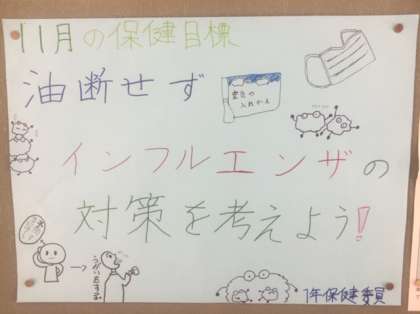 11月の保健目標
油断せず
空気の
入れかえ
インフルエンザの
対策を考えよう!
うがいをする
1年保健委員